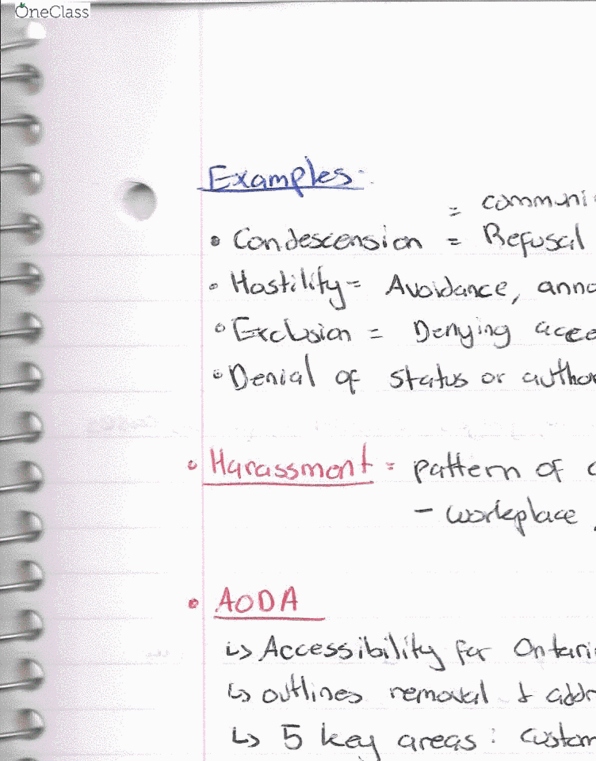 OneClass
Examples:
= communi
• Condescension = Refusal
• Hostility = Avoidance, anno
• Exclusion = Denying acce
• Denial of status or author
• Harassment = pattern of
- workplace
• AODA
↳ Accessibility for Ontari
↳ outlines removal & addr
↳ 5 key areas: custom